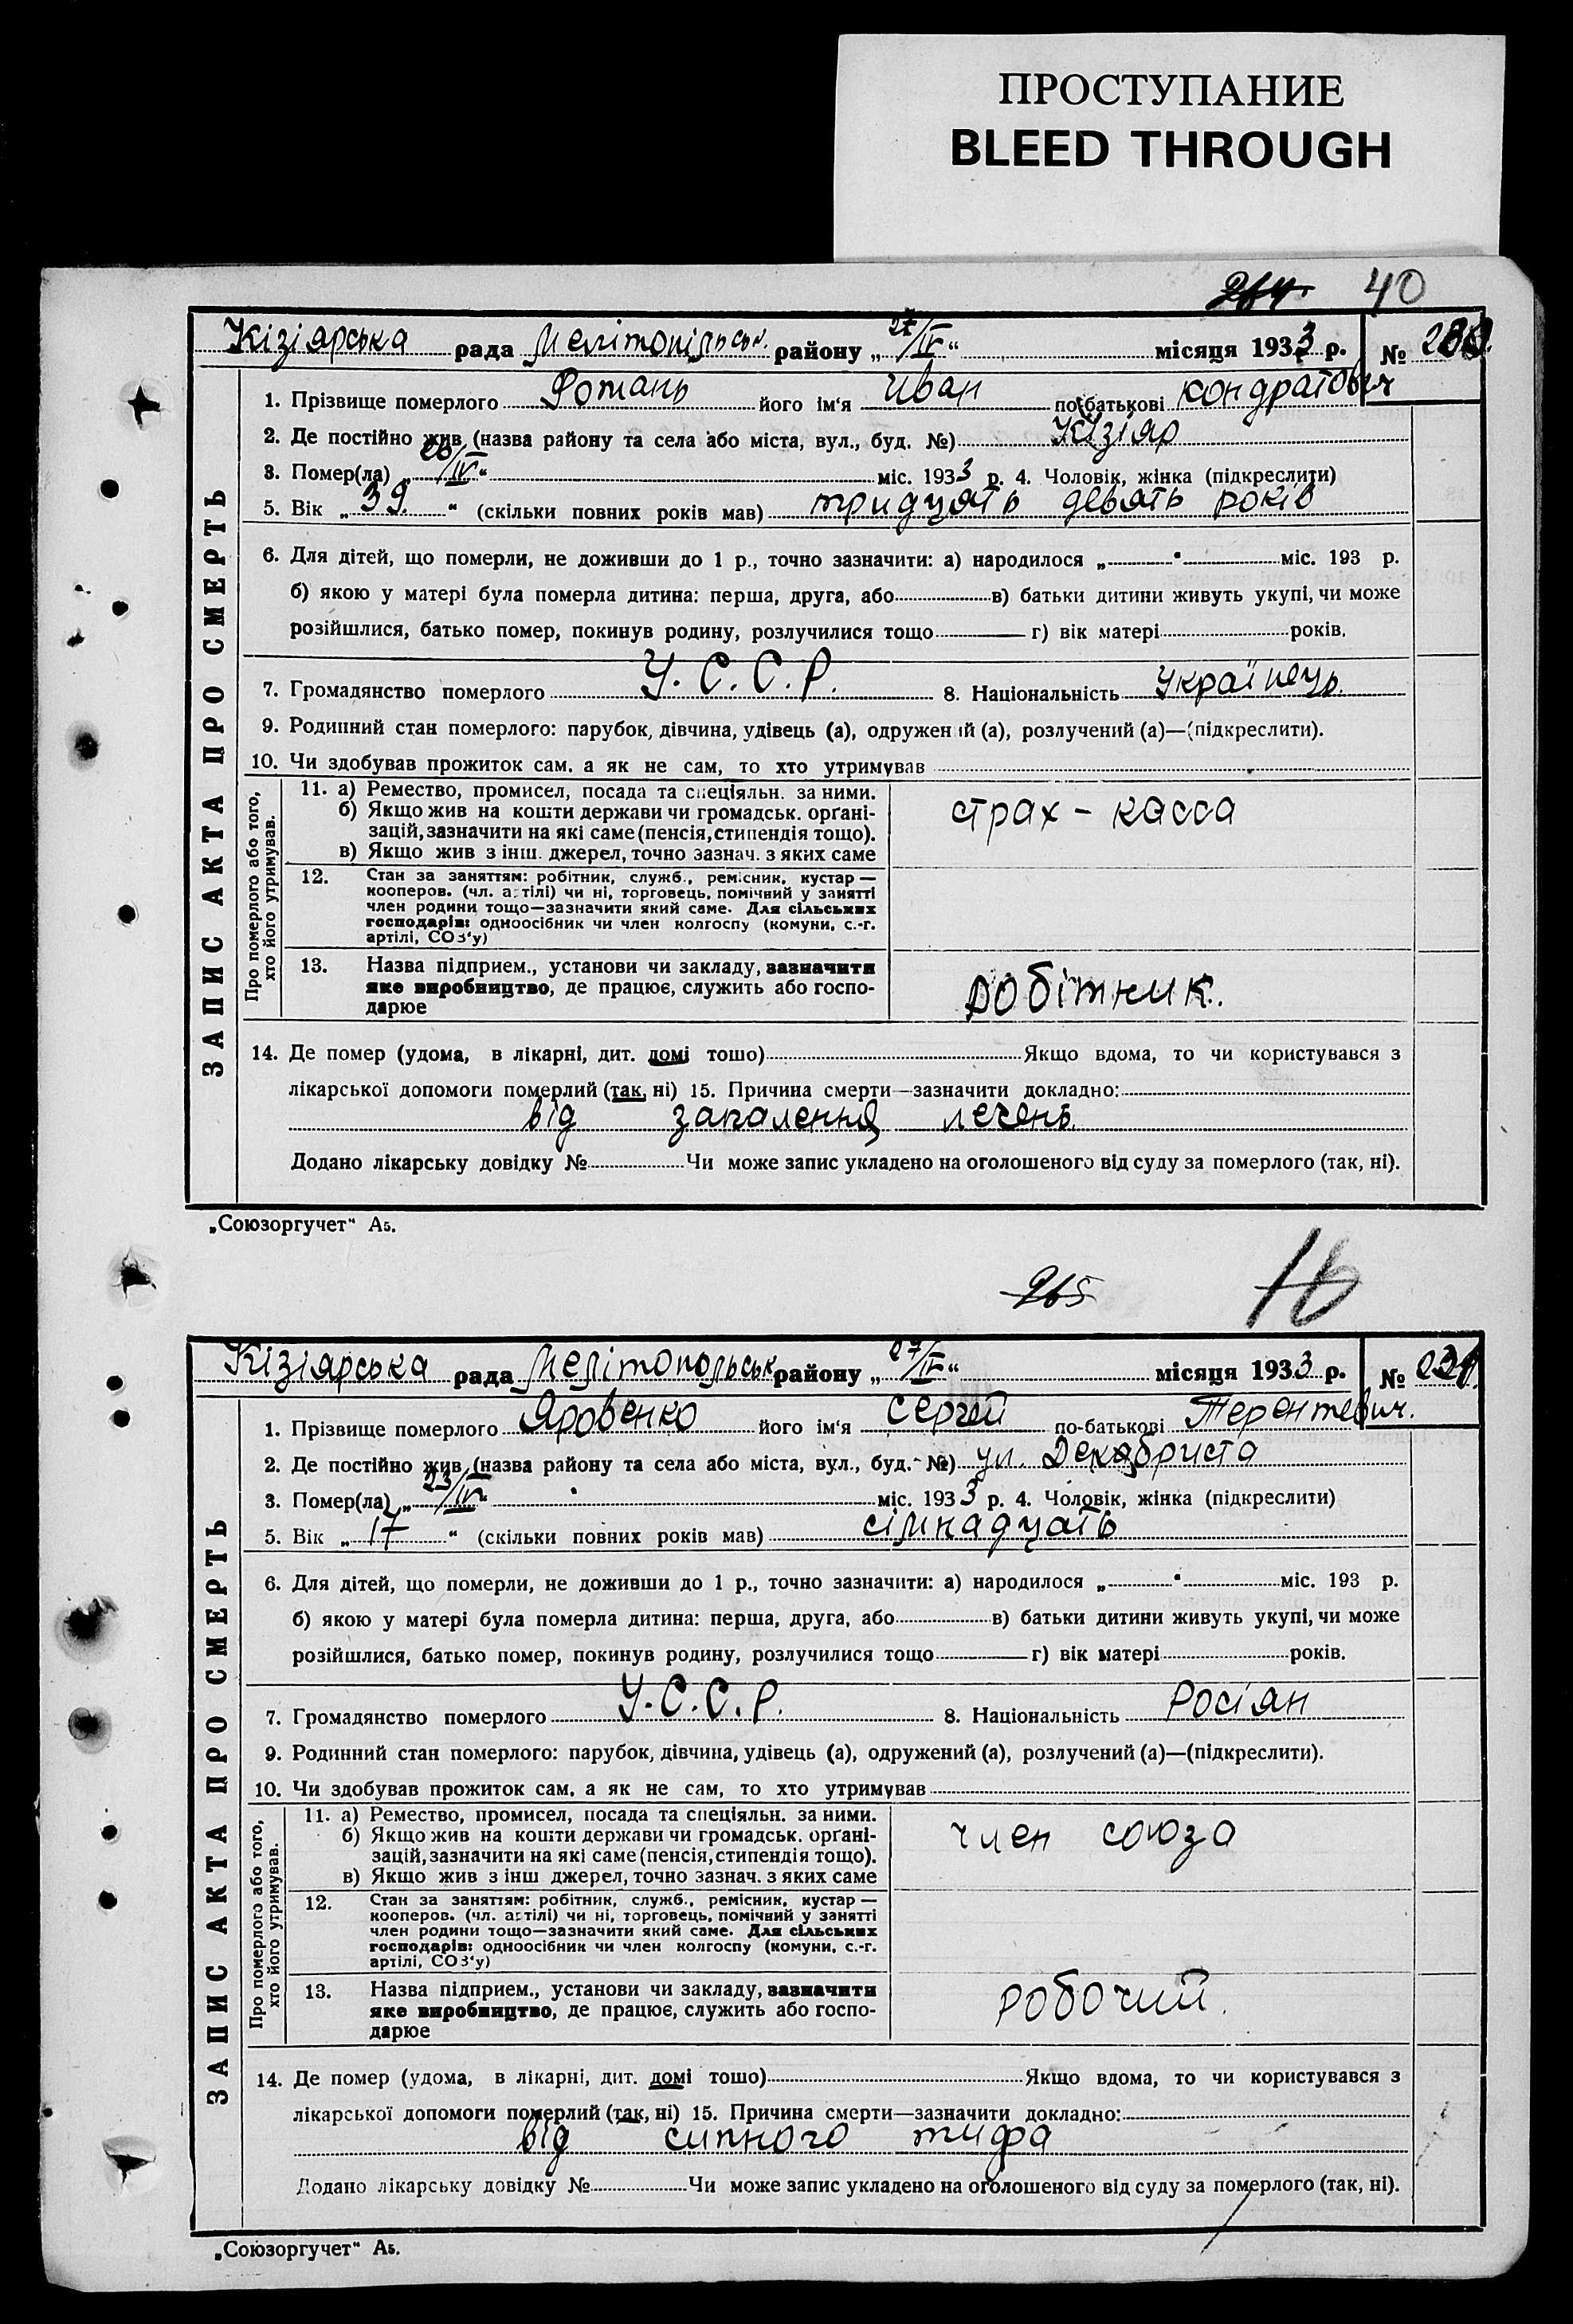 ПРОСТУПАНИЕ
BLEED THROUGH
264. 40
Кізіярська рада Мелітопільськ. району „27/IV“ місяця 1933 р. №
ЗАПИС АКТА ПРО СМЕРТЬ
1. Прізвище померлого Ротань його ім‘я Иван по-батькові Кондратович
2. Де постійно жив (назва району та села або міста, вул., буд. №) Кізіяр
3. Помер(ла) „26/IV“ міс. 1933 р. 4. Чоловік, жінка (підкреслити)
5. Вік „39.“ (скільки повних років мав) тридцять девять років
6. Для дітей, що померли, не доживши до 1 р., точно зазначити: а) народилося „ “ міс. 193 р.
б) якою у матері була померла дитина: перша, друга, або в) батьки дитини живуть укупі, чи може
розійшлися, батько помер, покинув родину, розлучилися тощо г) вік матері років.
7. Громадянство померлого У.С.С.Р. 8. Національність Українець.
9. Родинний стан померлого: парубок, дівчина, удівець (а), одружений (а), розлучений (а)—(підкреслити).
10. Чи здобував прожиток сам, а як не сам, то хто утримував
Про померлого або того,
хто його утримував.
11. а) Ремество, промисел, посада та спеціяльн. за ними.
б) Якщо жив на кошти держави чи громадськ. орґані-
зацій, зазначити на які саме (пенсія, стипендія тощо).
в) Якщо жив з інш. джерел, точно зазнач. з яких саме
страх - касса
12. Стан за заняттям: робітник, служб., ремісник, кустар —
кооперов. (чл. артілі) чи ні, торговець, помічний у занятті
член родини тощо—зазначити який саме. Для сільських
господарів: одноосібник чи член колгоспу (комуни, с.-г.
артілі, СОЗ‘у)
13. Назва підприєм., установи чи закладу, зазначити
яке виробництво, де працює, служить або госпо-
дарює
робітник.
14. Де помер (удома, в лікарні, дит. домі тощо) Якщо вдома, то чи користувався з
лікарської допомоги померлий (так, ні) 15. Причина смерти—зазначити докладно:
від запалення лечень
Додано лікарську довідку № Чи може запис укладено на оголошеного від суду за померлого (так, ні).
„Союзоргучет“ А5.
265 16
Кізіярська рада Мелітопольськ району „27/IV“ місяця 1933 р. №
ЗАПИС АКТА ПРО СМЕРТЬ
1. Прізвище померлого Яровенко його ім‘я Сергей по-батькові Терентевич.
2. Де постійно жив (назва району та села або міста, вул., буд. №) ул. Декабриста
3. Помер(ла) „23/IV“ міс. 1933 р. 4. Чоловік, жінка (підкреслити)
5. Вік „17“ (скільки повних років мав) сімнадцать
6. Для дітей, що померли, не доживши до 1 р., точно зазначити: а) народилося „ “ міс. 193 р.
б) якою у матері була померла дитина: перша, друга, або в) батьки дитини живуть укупі, чи може
розійшлися, батько помер, покинув родину, розлучилися тощо г) вік матері років.
7. Громадянство померлого У.С.С.Р. 8. Національність Росіян
9. Родинний стан померлого: парубок, дівчина, удівець (а), одружений (а), розлучений (а)—(підкреслити).
10. Чи здобував прожиток сам, а як не сам, то хто утримував
Про померлого або того,
хто його утримував.
11. а) Ремество, промисел, посада та спеціяльн. за ними.
б) Якщо жив на кошти держави чи громадськ. орґані-
зацій, зазначити на які саме (пенсія, стипендія тощо).
в) Якщо жив з інш джерел, точно зазнач. з яких саме
член союза
12. Стан за заняттям: робітник, служб., ремісник, кустар —
кооперов. (чл. артілі) чи ні, торговець, помічний у занятті
член родини тощо—зазначити який саме. Для сільських
господарів: одноосібник чи член колгоспу (комуни, с.-г.
артілі, СОЗ‘у)
13. Назва підприєм., установи чи закладу, зазначити
яке виробництво, де працює, служить або госпо-
дарює
робочий.
14. Де помер (удома, в лікарні, дит. домі тощо) Якщо вдома, то чи користувався з
лікарської допомоги померлий (так, ні) 15. Причина смерти—зазначити докладно:
від сипного тифа
Додано лікарську довідку № Чи може запис укладено на оголошеного від суду за померлого (так, ні).
„Союзоргучет“ А5.